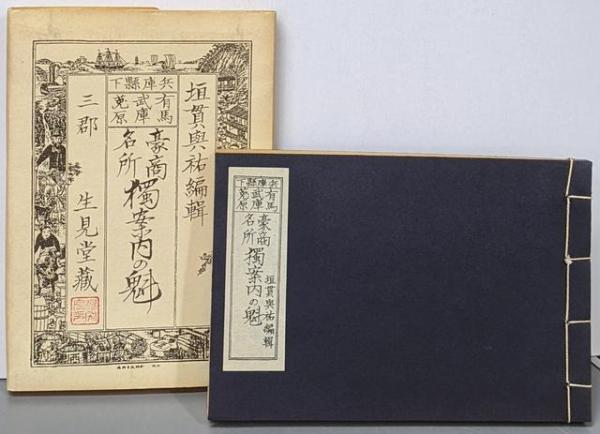 兵庫縣下
有馬
武庫
菟原
三郡
垣貫與祐編輯
豪商
名所
獨案内の魁
生見堂藏
兵庫縣下
有馬
武庫
菟原
豪商
名所
獨案内の魁
垣貫與祐編輯